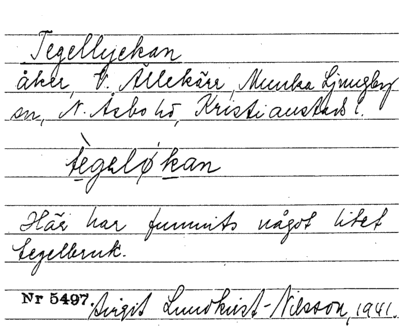 Tegellyckan
åker, V. Ällekärr, Munka Ljungby
sn, N. Åsbo hd, Kristianstads l.
tègelø̀kan
Här har funnits något litet
tegelbruk.
Nr 5497. Birgit Lundkvist-Nilsson, 1941.